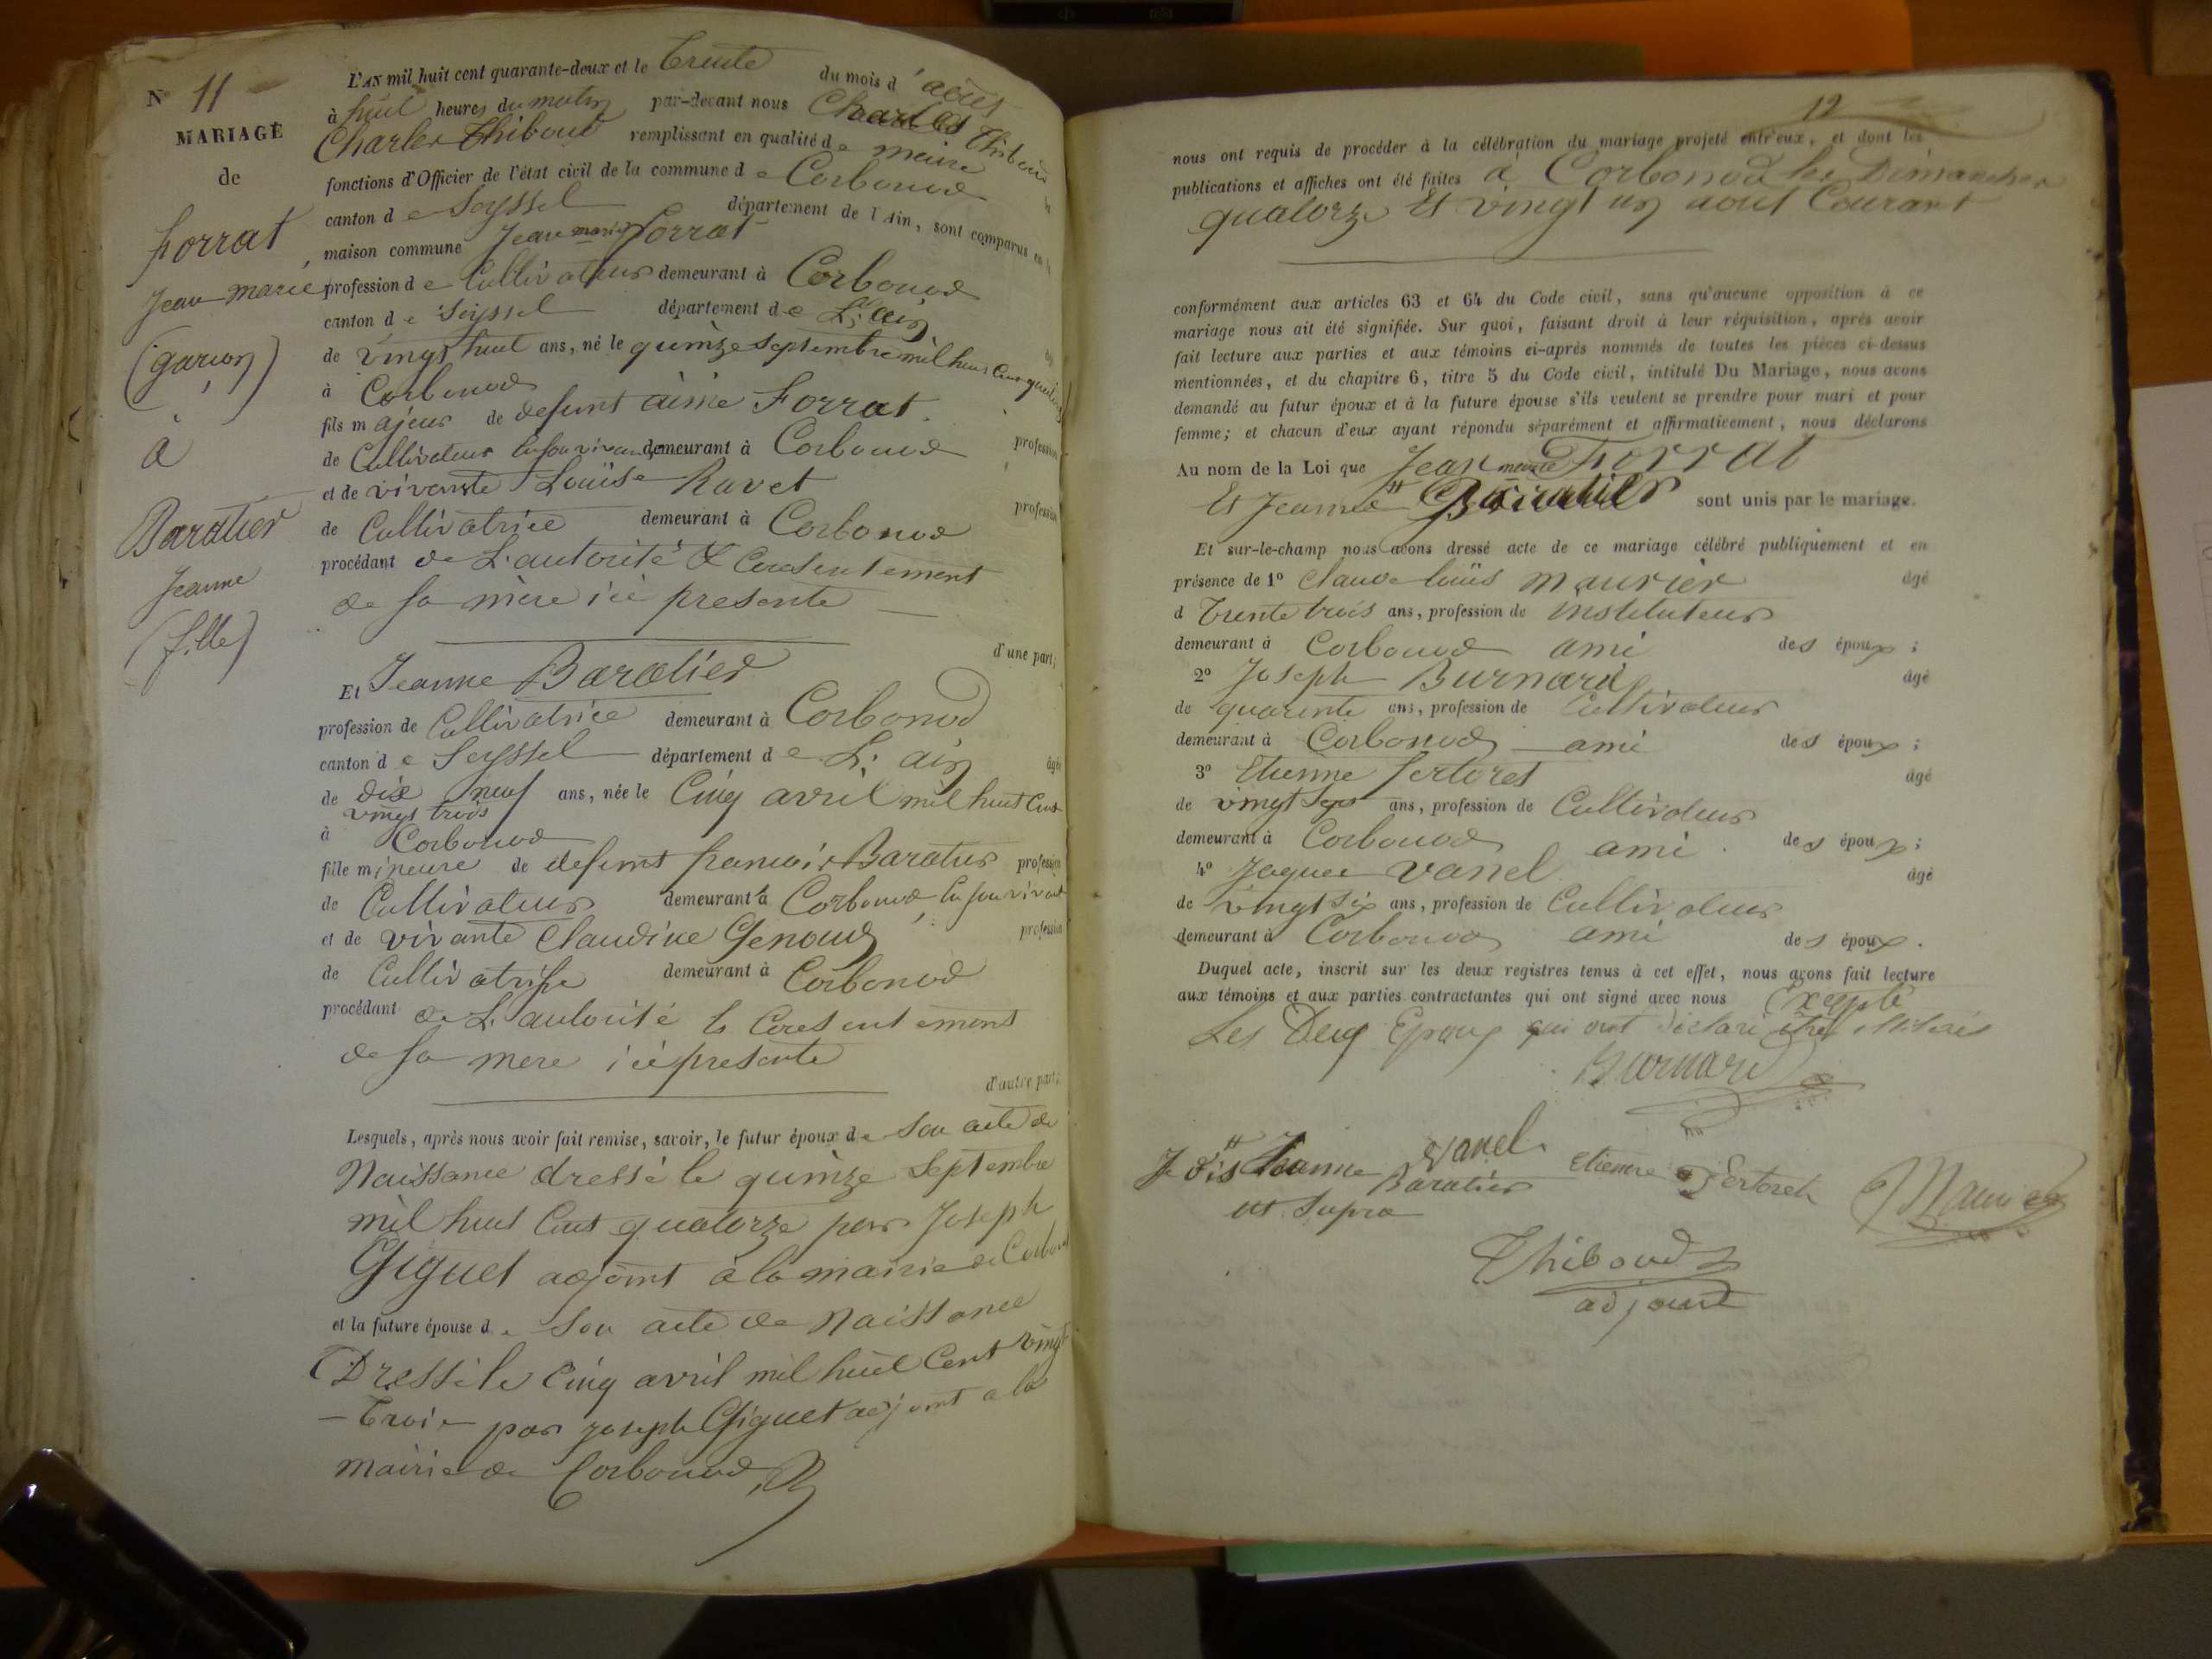 N° 11
MARIAGE
de
Forrat
Jean marie
(garçon)
à
Baratier
Jeanne
(fille)
L'AN mil huit cent quarante-deux et le trente du mois d'aout
à huit heures du matin par-devant nous Charles Thiboud
Charles Thiboud remplissant en qualité de maire
fonctions d'Officier de l'état civil de la commune de Corbonod
canton de Seyssel département de l'Ain, sont comparus en la
maison commune Jean marie Forrat
profession de Cultivateur demeurant à Corbonod
canton de Seyssel département de L'ain
de vingt huit ans, né le quinze septembre mil huit Cent quatorze
à Corbonod
fils majeur de defunt aimé Forrat profession
de Cultivateur en son vivant demeurant à Corbonod
et de vivante Louise Ravet profession
de Cultivatrice demeurant à Corbonod
procédant de L'autorité & Consentement
de sa mère icé presente
d'une part;
Et Jeanne Baratier
profession de Cultivatrice demeurant à Corbonod
canton de Seyssel département de L'ain âgée
de dix neuf ans, née le Cinq avril mil huit Cent
vingt trois
à Corbonod
fille mineure de defunt francois Baratier profession
de Cultivateur demeurant à Corbonod en son vivant
et de vivante Claudine Genoud profession
de Cultivatrise demeurant à Corbonod
procédant de L'autorité & Consentement
de sa mere icé presente
d'autre part;
Lesquels, après nous avoir fait remise, savoir, le futur époux de son acte de
Naissance dressé le quinze Septembre
mil huit Cent quatorze par Joseph
Giguet adjoint à la mairie de Corbonod
et la future épouse de son acte de Naissance
Dressé le Cinq avril mil huit Cent vingt
-trois par joseph Giguet adjoint a la
mairie de Corbonod
12
nous ont requis de procéder à la célébration du mariage projeté entr'eux, et dont les
publications et affiches ont été faites à Corbonod les Dimanches
quatorze Et vingt un aout Courant
conformément aux articles 63 et 64 du Code civil, sans qu'aucune opposition à ce
mariage nous ait été signifiée. Sur quoi, faisant droit à leur réquisition, après avoir
fait lecture aux parties et aux témoins ci-après nommés de toutes les pièces ci-dessus
mentionnées, et du chapitre 6, titre 5 du Code civil, intitulé Du Mariage, nous avons
demandé au futur époux et à la future épouse s'ils veulent se prendre pour mari et pour
femme; et chacun d'eux ayant répondu séparément et affirmativement, nous déclarons
Au nom de la Loi que Jean marie Forrat
Et Jeanne Baratier sont unis par le mariage.
Et sur-le-champ nous avons dressé acte de ce mariage célébré publiquement et en
présence de 1° Claude louis maurier âgé
d trente trois ans, profession de instituteur
demeurant à Corbonod ami des époux;
2° Joseph Burnard âgé
de quarente ans, profession de Cultivateur
demeurant à Corbonod ami des époux;
3° Etienne fertoret âgé
de vingt sept ans, profession de Cultivateur
demeurant à Corbonod ami des époux;
4° Jaques vanel âgé
de vingt six ans, profession de Cultivateur
demeurant à Corbonod ami des époux.
Duquel acte, inscrit sur les deux registres tenus à cet effet, nous avons fait lecture
aux témoins et aux parties contractantes qui ont signé avec nous Excepté
Les Deux Epoux qui ont déclaré être illiterés
Burnard
vanel
Je dis Jeanne Baratier
ut supra
Etienne Fertoret
Maurier
Thiboud
adjoint